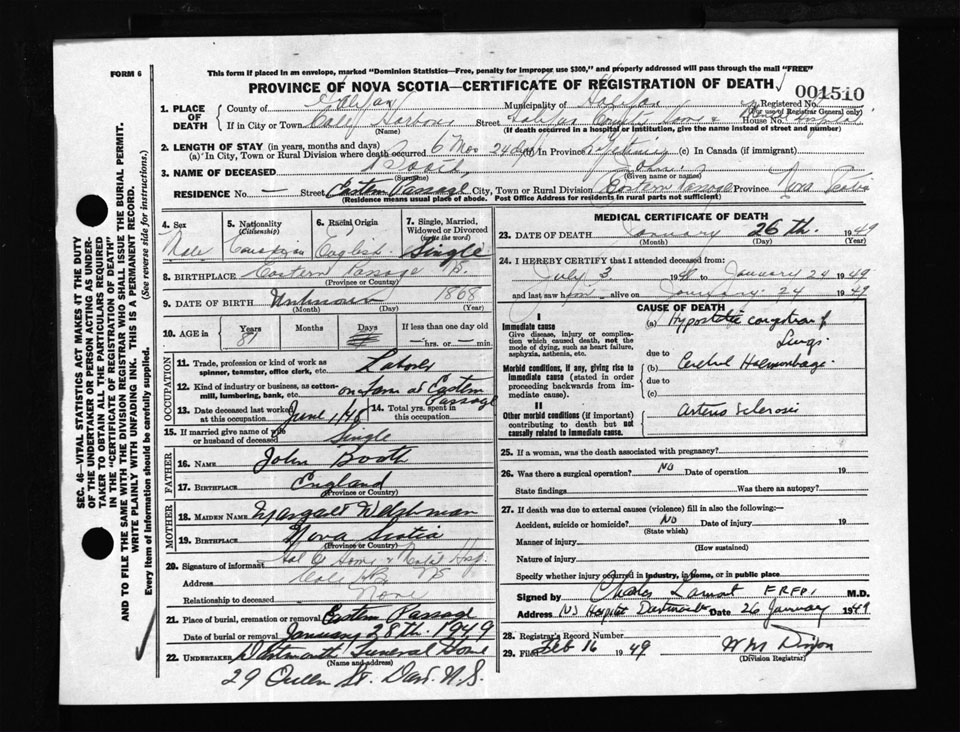 FORM 6
This form if placed in an envelope, marked "Dominion Statistics—Free, penalty for improper use $300," and properly addressed will pass through the mail "FREE"
PROVINCE OF NOVA SCOTIA—CERTIFICATE OF REGISTRATION OF DEATH
001510
1. PLACE OF DEATH
County of Halifax Municipality of Halifax Registered No.
(For use of Registrar General only)
If in City or Town Cole Harbour Street Halifax County Home & Hospital House No.
(Name) (If death occurred in a hospital or institution, give the name instead of street and number)
2. LENGTH OF STAY (in years, months and days)
(a) In City, Town or Rural Division where death occurred 6 Mos 24 days (b) In Province Lifetime (c) In Canada (if immigrant)
3. NAME OF DECEASED Booth, John
(Surname) (Given name or names)
RESIDENCE No. — Street Eastern Passage City, Town or Rural Division Eastern Passage Province Nova Scotia
(Residence means usual place of abode. Post Office Address for residents in rural parts not sufficient)
4. Sex
Male
5. Nationality
(Citizenship)
Canadian
6. Racial Origin
English
7. Single, Married, Widowed or Divorced
(write the word)
Single
8. BIRTHPLACE Eastern Passage
(Province or Country)
9. DATE OF BIRTH Unknown 1868
(Month) (Day) (Year)
10. AGE in
Years Months Days If less than one day
81 — hrs. or — min.
OCCUPATION
11. Trade, profession or kind of work as spinner, teamster, office clerk, etc. Laborer
12. Kind of industry or business, as cotton-mill, lumbering, bank, etc. on Farm at Eastern Passage
13. Date deceased last worked at this occupation June 1/48
14. Total yrs. spent in this occupation
15. If married give name of wife or husband of deceased Single
FATHER
16. NAME John Booth
17. BIRTHPLACE England
(Province or Country)
MOTHER
18. MAIDEN NAME Margaret Welshman
19. BIRTHPLACE Nova Scotia
(Province or Country)
20. Signature of informant Hal Co Home & Hosp.
Address Cole Hbr NS
Relationship to deceased None
21. Place of burial, cremation or removal Eastern Passage
Date of burial or removal January 28th. 1949
22. UNDERTAKER Dartmouth Funeral Home
(Name and address)
29 Queen St. Dart. N.S.
MEDICAL CERTIFICATE OF DEATH
23. DATE OF DEATH January 26th. 1949
(Month) (Day) (Year)
24. I HEREBY CERTIFY that I attended deceased from:
July 3 1948 to January 24 1949
and last saw him alive on January 24 1949
CAUSE OF DEATH
I
Immediate cause
Give disease, injury or complication which caused death, not the mode of dying, such as heart failure, asphyxia, asthenia, etc.
(a) Hypostatic congestion of Lungs
due to
Morbid conditions, if any, giving rise to immediate cause (stated in order proceeding backwards from immediate cause).
(b) Cerebral Haemorrhage
due to
(c)
II
Other morbid conditions (if important) contributing to death but not causally related to immediate cause.
Arterio sclerosis
25. If a woman, was the death associated with pregnancy?
26. Was there a surgical operation? No Date of operation 19
State findings Was there an autopsy?
27. If death was due to external causes (violence) fill in also the following:—
Accident, suicide or homicide? No Date of injury 19
(State which)
Manner of injury
(How sustained)
Nature of injury
Specify whether injury occurred in industry, in home, or in public place
Signed by Charles Lamont M.D.
Address NS Hospital Dartmouth Date 26 January 1949
28. Registrar's Record Number
29. Filed Feb 16 1949 W M Dixon
(Division Registrar)
SEC. 46—VITAL STATISTICS ACT MAKES IT THE DUTY OF THE UNDERTAKER OR PERSON ACTING AS UNDERTAKER TO OBTAIN ALL THE PARTICULARS REQUIRED IN THE "CERTIFICATE OF REGISTRATION OF DEATH" AND TO FILE THE SAME WITH THE DIVISION REGISTRAR WHO SHALL ISSUE THE BURIAL PERMIT.
WRITE PLAINLY WITH UNFADING INK. THIS IS A PERMANENT RECORD.
Every item of Information should be carefully supplied. (See reverse side for instructions.)